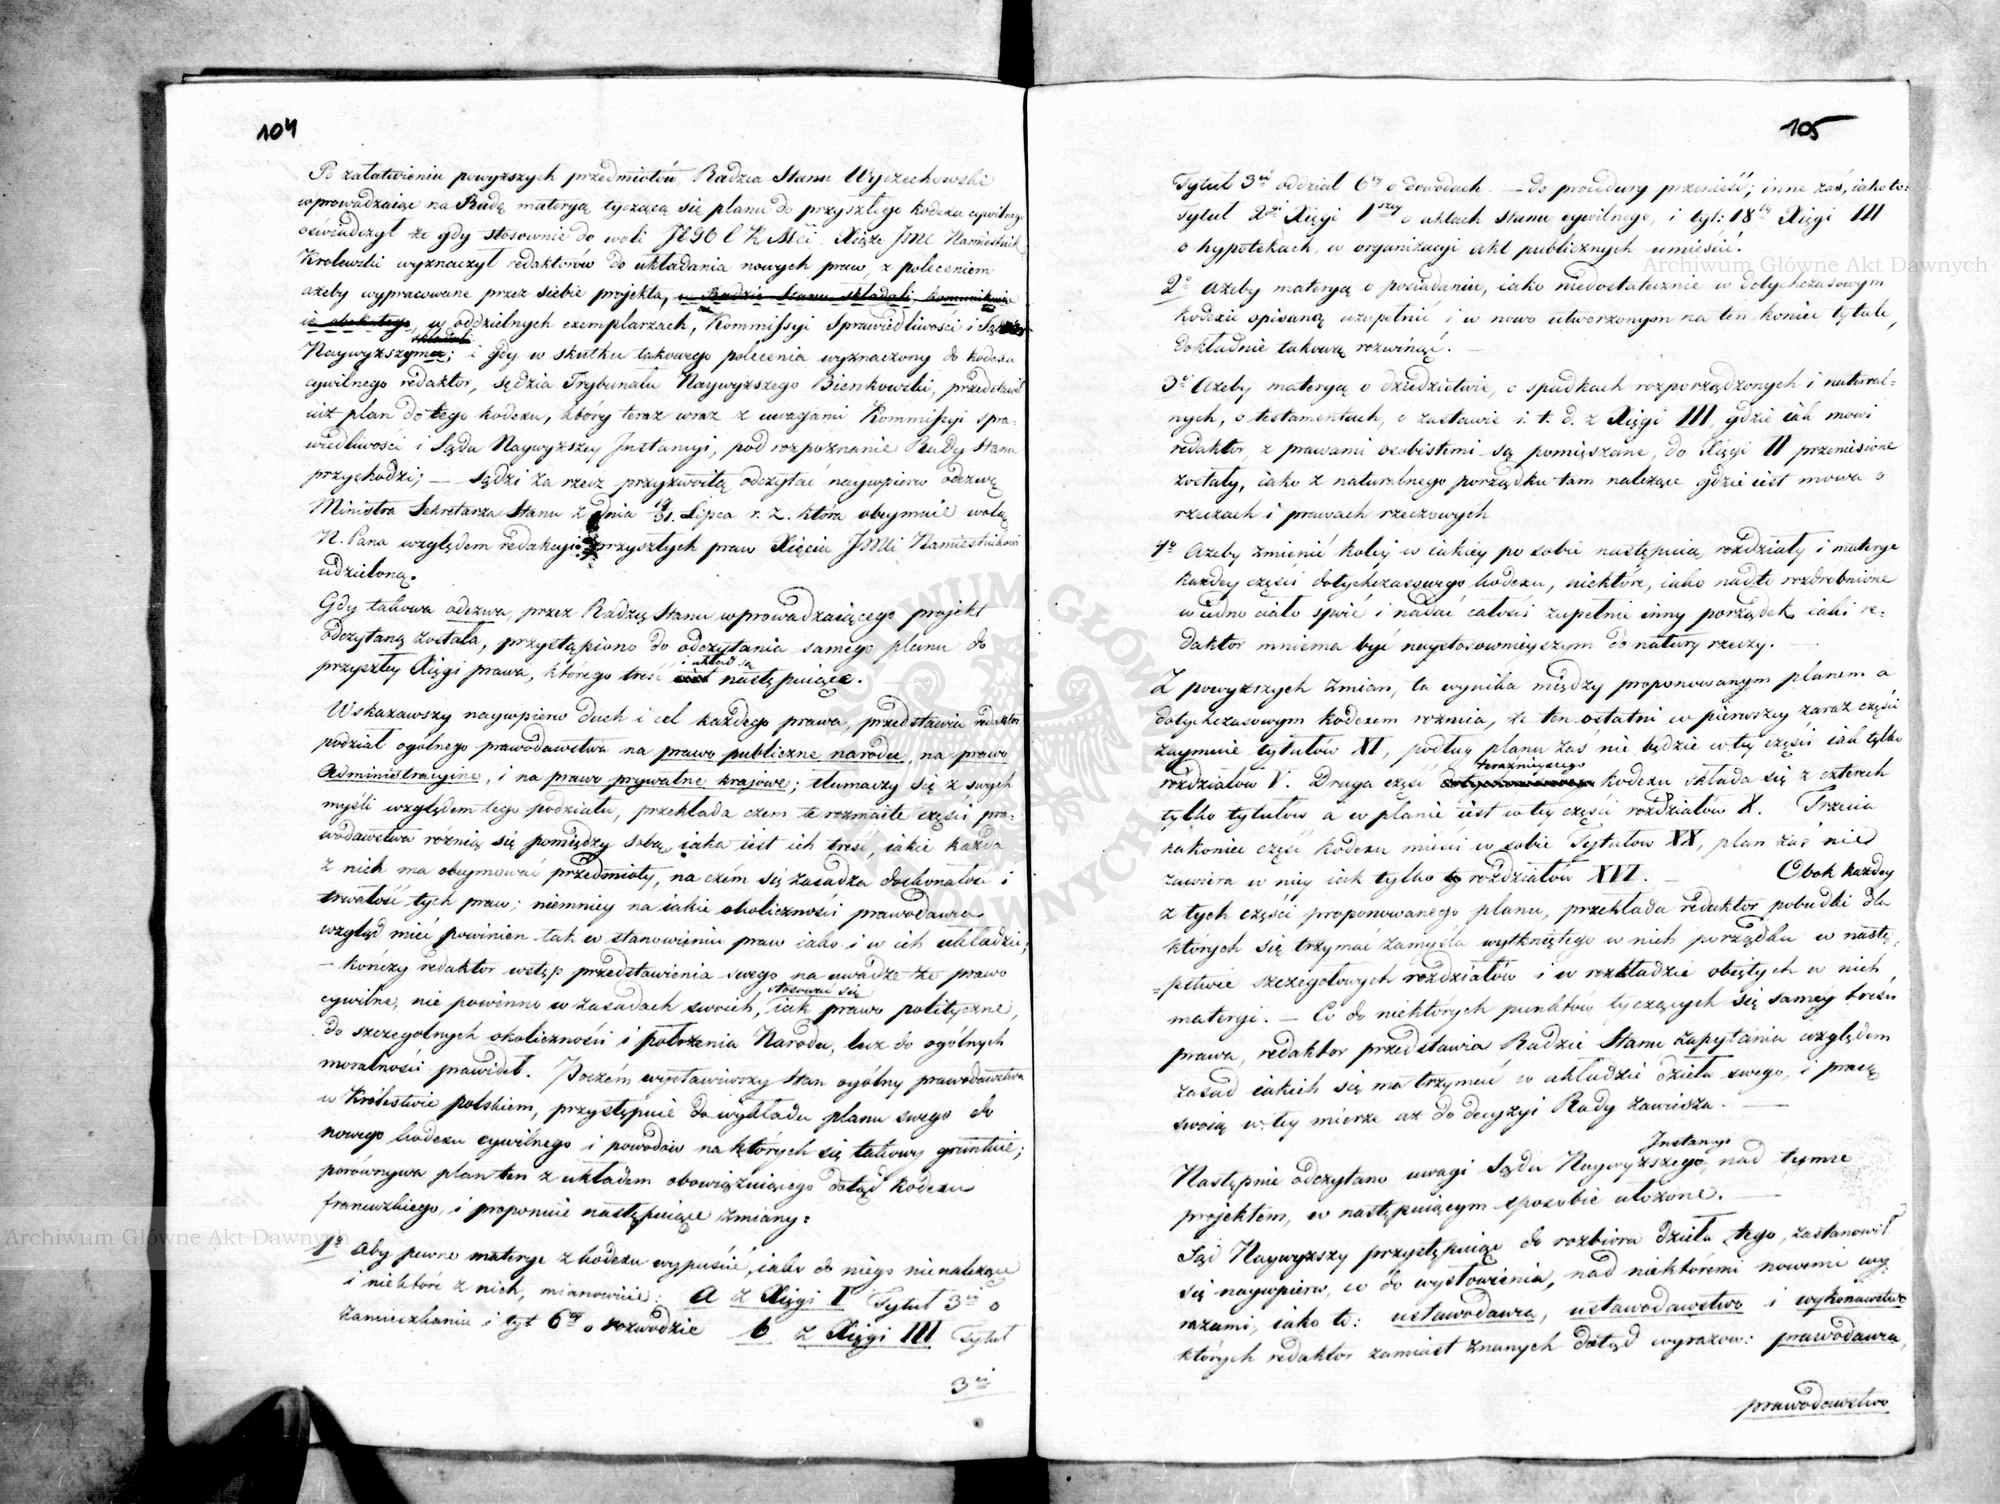 104
Po załatwieniu powyższych przedmiotów, Radzca Stanu Wyczechowski
wprowadzaiąc na Radę materyą tyczącą się planu do przyszłego kodexu cywilnego
oświadczył że gdy stosownie do woli JEGO C K Mci. Xiąże JMC Namiestnik
Krolewski wyznaczył redaktorów do układania nowych praw, z poleceniem
ażeby wypracowane przez siebie projekta, w Radzie Stanu składali,
w oddzielnych exemplarzach, Kommissyi Sprawiedliwości i
składali
Naywyższym; i gdy w skutku takowego polecenia wyznaczony do kodexu
cywilnego redaktor, sędzia Trybunału Naywyższego Bienkowski, przedstawił
iuż plan do tego kodexu, który teraz wraz z uwagami Kommissyi spra-
wiedliwości i Sądu Naywyższey Instancyi, pod rozpoznanie Rady Stanu
przychodzi; — sądzi za rzecz przyzwoitą odczytać naypierw odezwę
Ministra Sekretarza Stanu z dnia 19/31. Lipca r. z. która obeymuie wolą
N. Pana względem redakcyi przyszłych praw Xięciu JMci Namiestnikowi
udzieloną.
Gdy takowa odezwa, przez Radzcę Stanu wprowadzaiącego projekt
odczytaną została, przystąpiono do odczytania samego planu do
i układ są
przyszłey Xięgi prawa, którego treść następuiące.
Wskazawszy naypierw duch i cel każdego prawa, przedstawia redaktor
podział ogólnego prawodawstwa na prawo publiczne narodu, na prawo
Administracyine, i na prawo prywatne kraiowe; tłumaczy się z swych
myśli względem tego podziału, przekłada czem te rozmaite części pra-
wodawstwa różnią się pomiędzy sobą, iaka iest ich treść, iakie każda
z nich ma obeymować przedmioty, na czém się zasadza doskonałość i
trwałość tych praw; niemniey na iakie okoliczności prawodawca
wzgląd mieć powinien tak w stanowieniu praw iako i w ich układzie;
— kończy redaktor wstęp przedstawienia swego na uwadze że prawo
stosować się
cywilne, nie powinno w zasadach swoich, iak prawo polityczne,
do szczególnych okoliczności i położenia Narodu, lecz do ogólnych
moralności prawideł. Poczém wystawiwszy stan ogólny prawodawstwa
w Królestwie polskiem, przystępuie do wykładu planu swego do
nowego kodexu cywilnego i powodów na których się takowy gruntuie;
porównywa plan ten z układem obowiązuiącego dotąd kodexu
francuzkiego, i proponuie następuiące zmiany:
1o Aby pewne materye z kodexu wypuścić, iako do niego nienależące
i niektóre z nich, mianowicie: A z Xięgi I Tytuł 3ci o
zamieszkaniu i tyt 6ty o rozwodzie b z Xięgi III Tytuł
3ci
105
Tytuł 3ci oddział 6ty o dowodach. — do procedury przenieść; inne zaś, iako to:
Tytuł 2gi Xięgi 1szey o aktach Stanu cywilnego, i tyt: 18ty Xięgi III
o hypotekach, w organizacyi akt publicznych umieścić.
2o Ażeby materyą o posiadaniu, iako niedostatecznie w dotychczasowym
kodexie opisaną uzupełnić i w nowo utworzonym na ten koniec tytule,
dokładnie takową rozwinąć. —
3o Ażeby materyą o dziedzictwie, o spadkach rozporządzonych i natural-
nych, o testamentach, o zastawie i. t. d. z Xięgi III, gdzie iak mowi
redaktor, z prawami osobistemi są pomięszane, do Xięgi II przeniesione
zostały, iako z naturalnego porządku tam należące gdzie iest mowa o
rzeczach i prawach rzeczowych
4o Ażeby zmienić koléy w iakiey po sobie następuią rozdziały i materye
każdey części dotychczasowego kodexu, niektóre, iako nadto rozdrobnione
w iedno ciało spoić i nadać całości zupełnie inny porządek, iaki re-
daktor mniema być naystosownieyszym do natury rzeczy. —
Z powyższych zmian, ta wynika między proponowanym planem a
dotychczasowym kodexem roznica, że ten ostatni w pierwszey zaraz części
zaymuie tytułów XI, podług planu zaś nie będzie w tey części iak tylko
teraznieyszego
rozdziałów V. Druga część kodexu składa się z czterech
tylko tytułów a w planie iest w tey części rozdziałów X. Trzecia
nakoniec część kodexu mieści w sobie Tytułów XX, plan zaś nie
zawiera w niey iak tylko rozdziałów XVI. — Obok każdey
z tych części proponowanego planu, przekłada redaktor pobudki dla
których się trzymać zamyśla wytkniętego w nich porządku w nastę-
pstwie szczegółowych rozdziałów i w rozkładzie obiętych w nich
materyi. — Co do niektórych punktów tyczących się saméy treści
prawa, redaktor przedstawia Radzie Stanu zapytania względem
zasad iakich się ma trzymać w układzie dzieła swego, i pracę
swoią w tey mierze aż do decyzyi Rady zawiesza. —
Instancyi
Następnie odczytano uwagi Sądu Naywyższego nad tymże
projektem, w następuiącym sposobie ułożone. —
Sąd Naywyższy przystępuiąc do rozbioru dzieła tego, zastanowił
się naypierw, co do wysłowienia, nad niektóremi nowemi wy-
razami, iako to: ustawodawca, ustawodawstwo i wykonawstwo
których redaktor zamiast znanych dotąd wyrazow: prawodawca,
prawodawstwo
Archiwum Główne Akt Dawnych
Archiwum Główne Akt Dawnych
ARCHIWUM GŁÓWNE AKT DAWNYCH